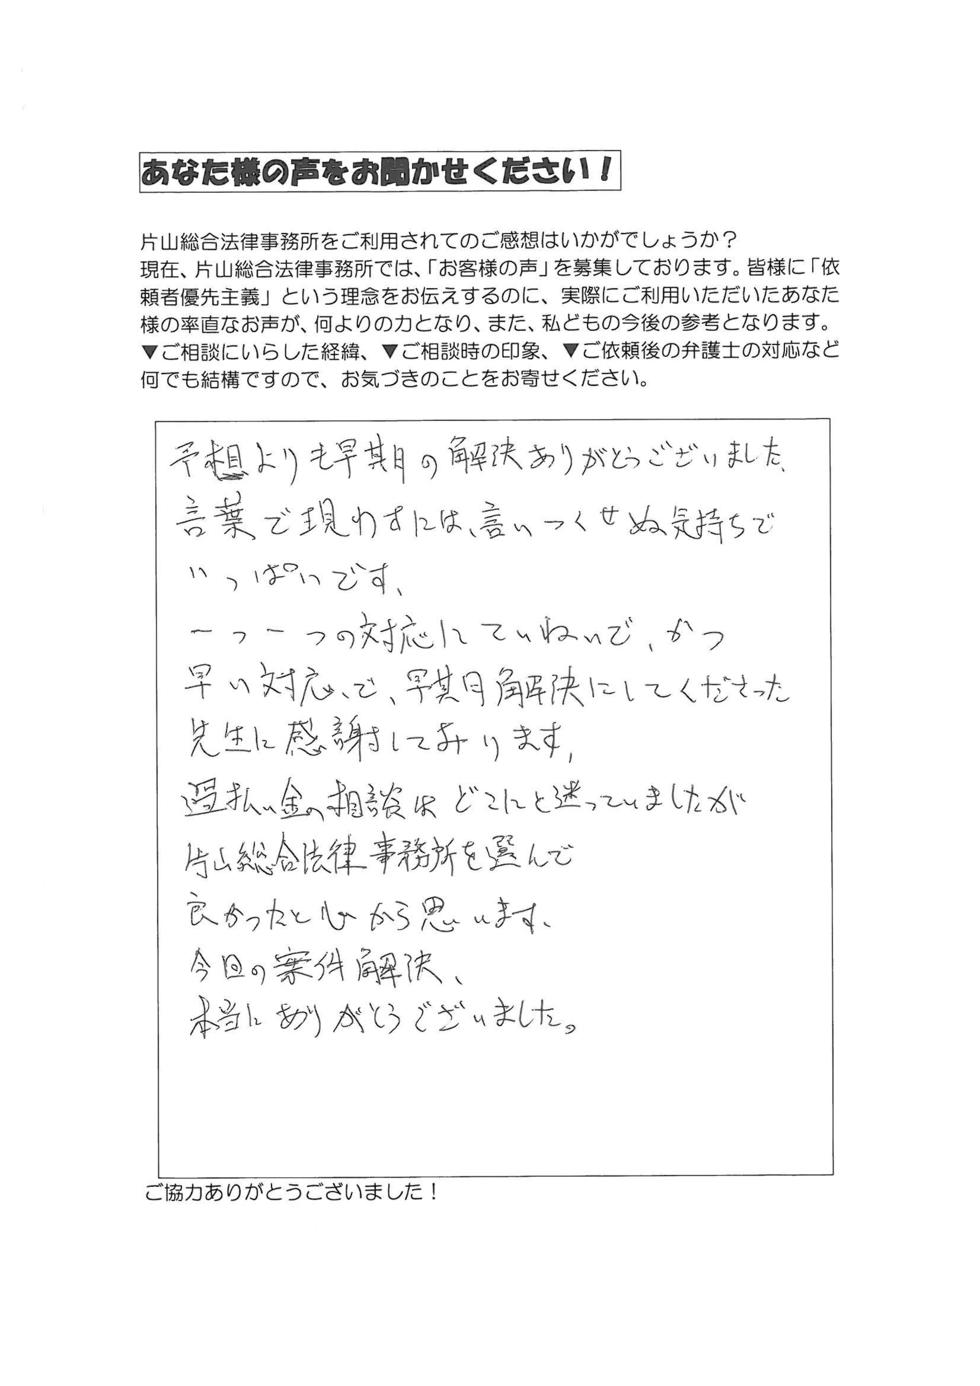 あなた様の声をお聞かせください！
片山総合法律事務所をご利用されてのご感想はいかがでしょうか？
現在、片山総合法律事務所では、「お客様の声」を募集しております。皆様に「依
頼者優先主義」という理念をお伝えするのに、実際にご利用いただいたあなた
様の率直なお声が、何よりの力となり、また、私どもの今後の参考となります。
▼ご相談にいらした経緯、▼ご相談時の印象、▼ご依頼後の弁護士の対応など
何でも結構ですので、お気づきのことをお寄せください。
予想よりも早期の解決ありがとうございました、
言葉で現わすには、言いつくせぬ気持ちで
いっぱいです、
一つ一つの対応にていねいで、かつ
早い対応、で、早期解決にしてくださった
先生に感謝しております、
過払い金の相談はどこにと迷っていましたが
片山総合法律事務所を選んで
良かったと心から思います、
今回の案件解決、
本当にありがとうございました。
ご協力ありがとうございました！